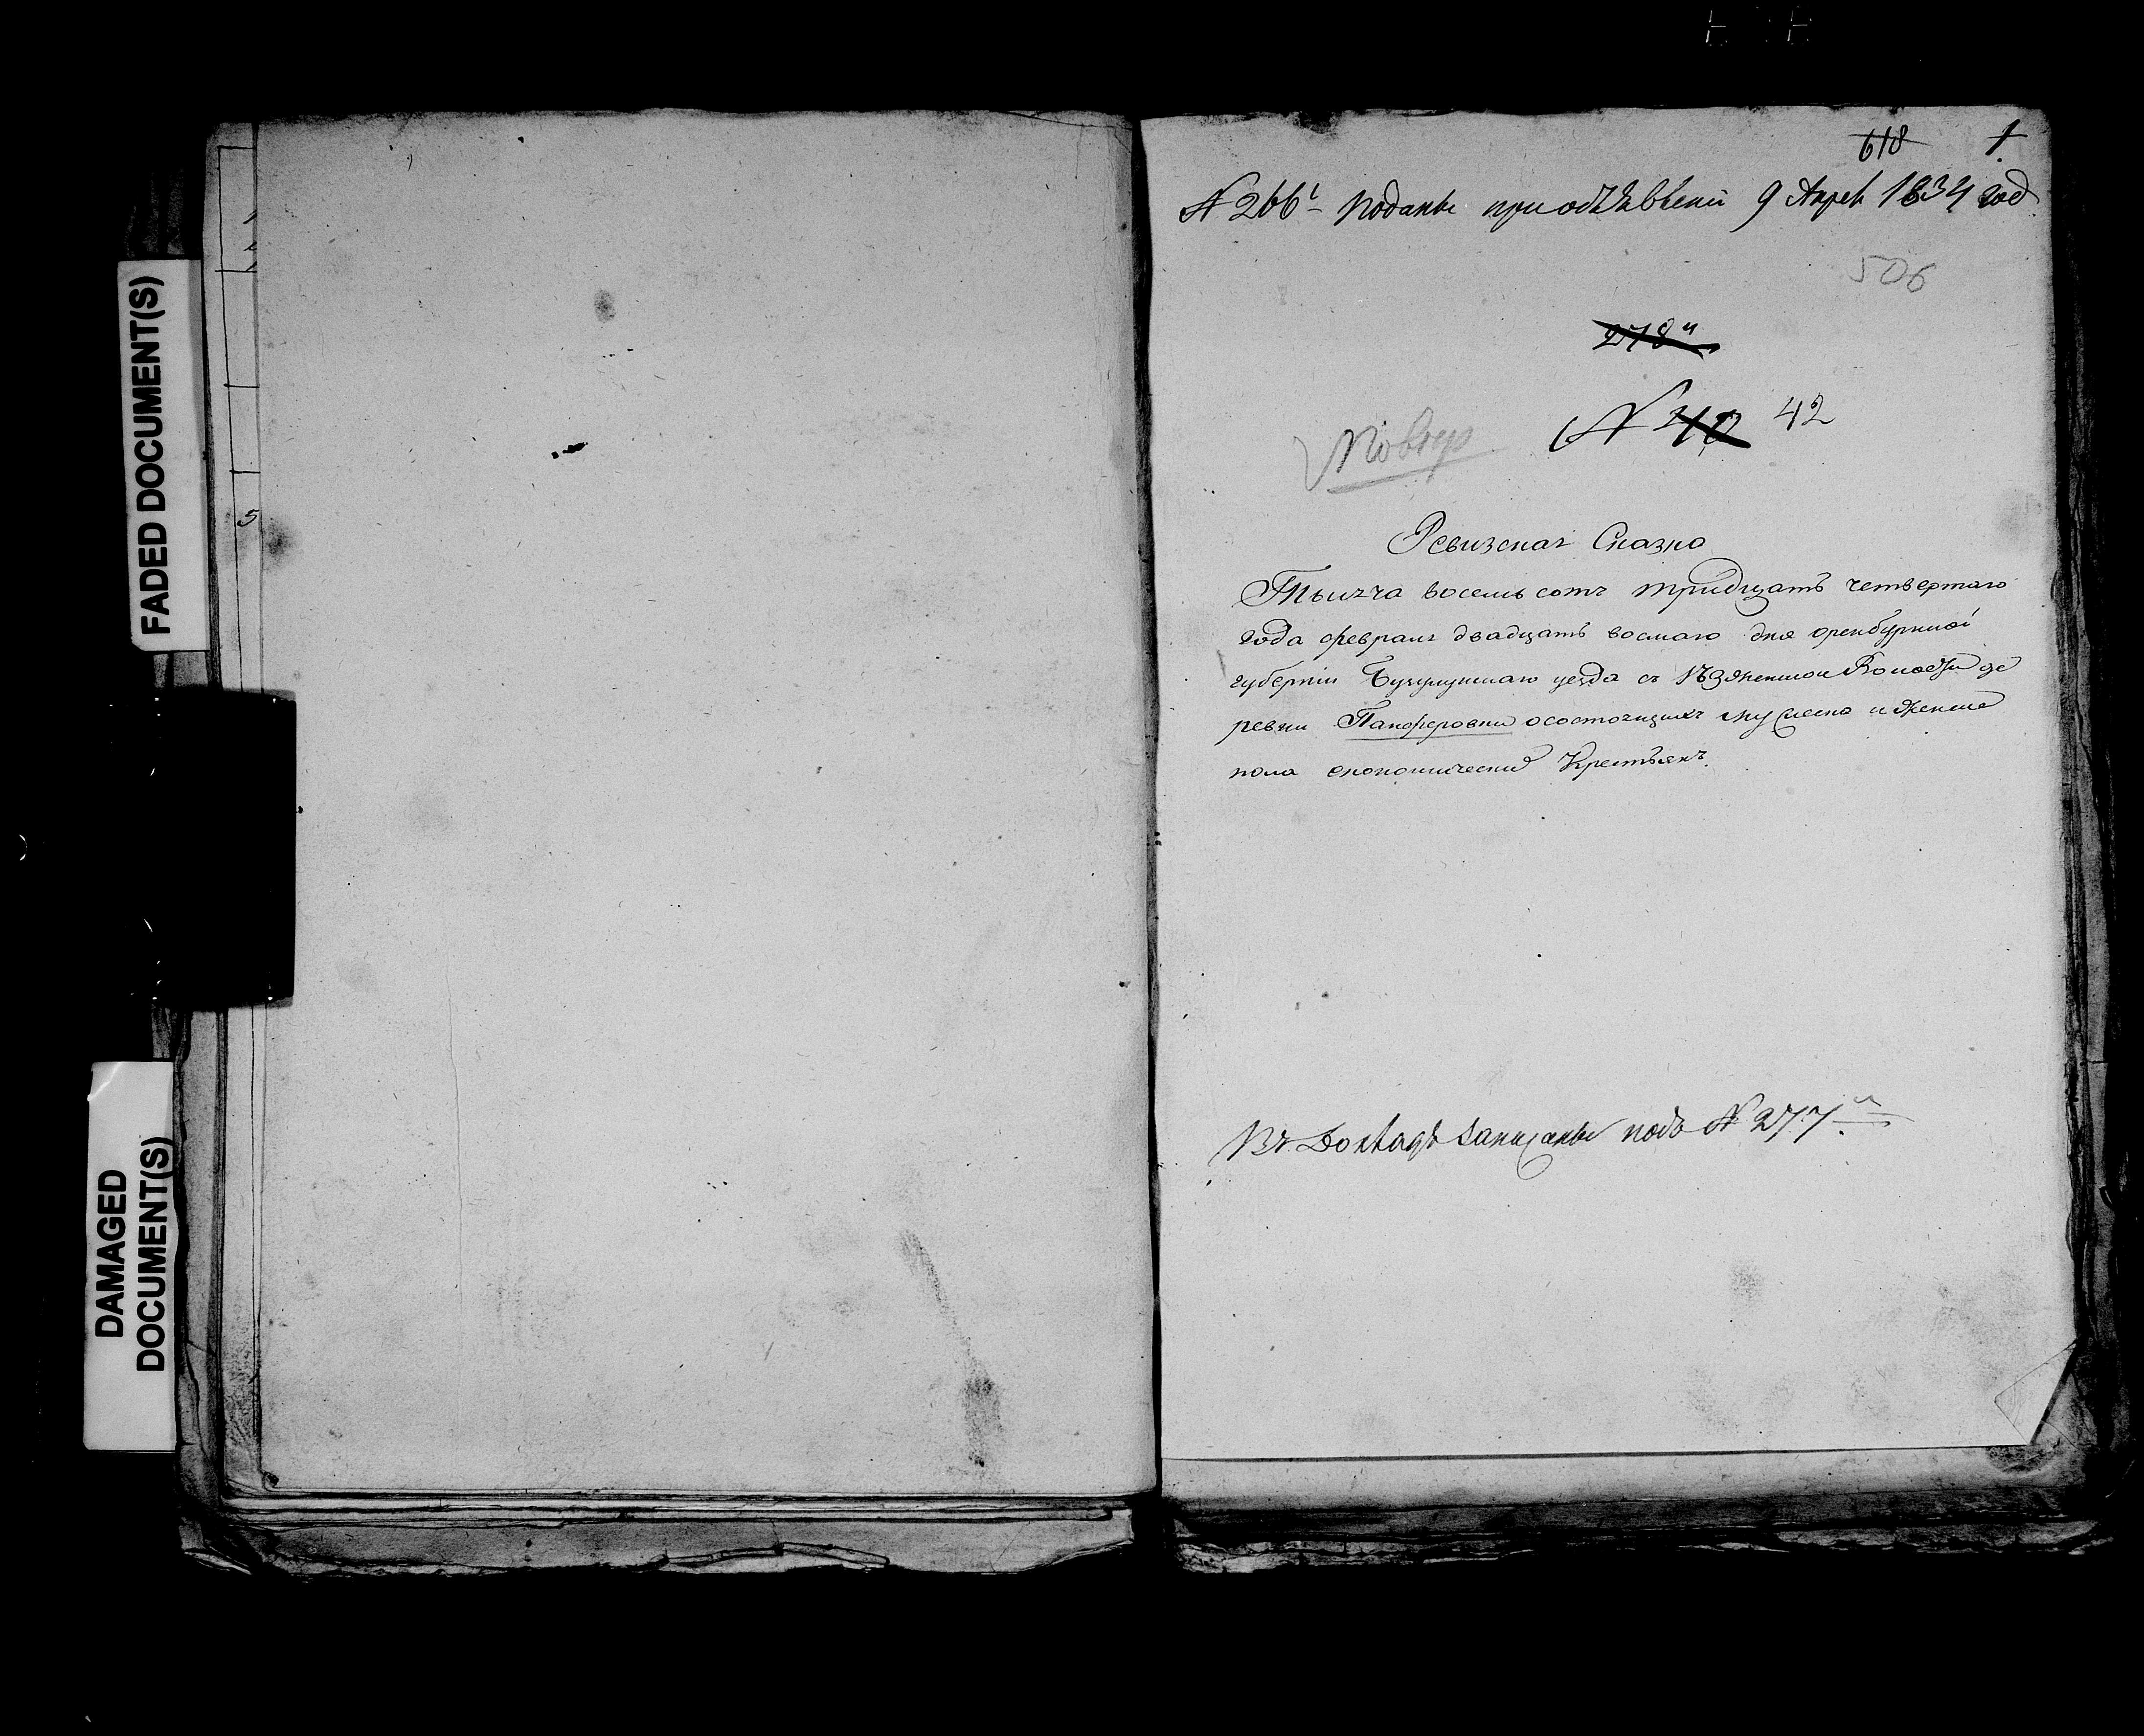 FADED DOCUMENT(S)
DAMAGED
DOCUMENT(S)
5
618 1
N 266й Поданы при объявлении 9 Апрел 1834 год
506
278й
N 40 42
Повтр
Ревизская Сказка
Тысеча восемь сотъ тридцать четвертаго
года февраля двадцать восмаго дня оренбурской
губернии Бузулуцкаго уезда съ Казенной Волости де
ревни Панферовки о состоящихъ мужеска и женска
пола економический Крестьянъ.
Въ Докладъ записаны подъ N 277й